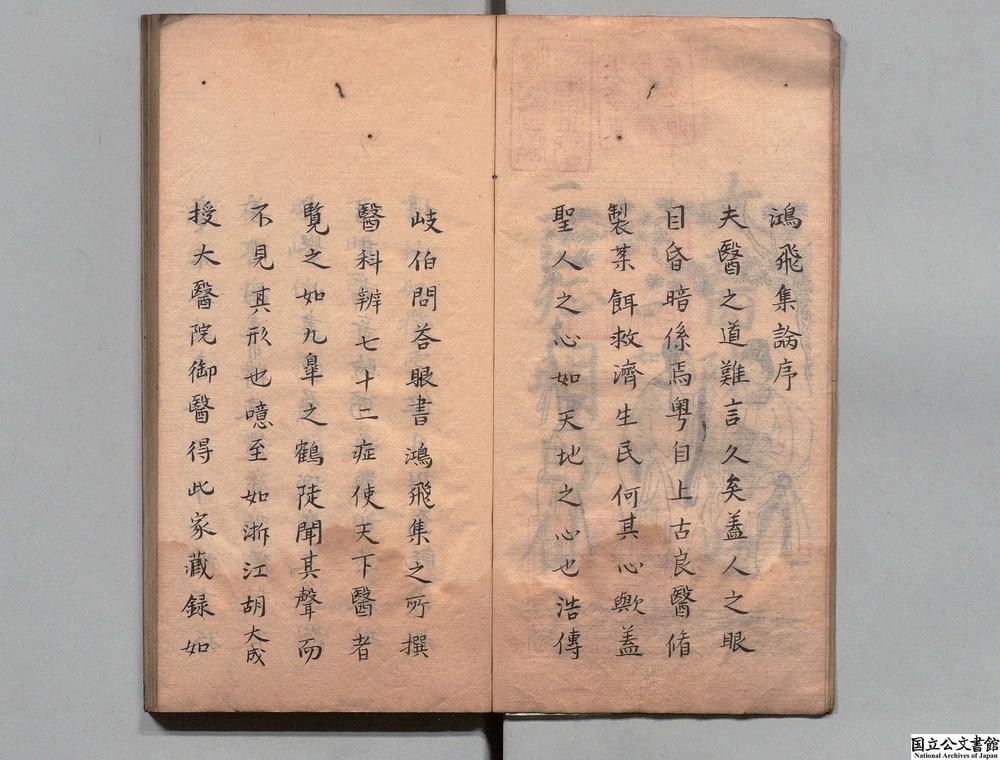 鴻飛集論序
夫醫之道難言久矣蓋人之眼
目昏暗係焉粤自上古良醫脩
製菓餌救濟生民何其心歟蓋
聖人之心如天地之心也浩傳
岐伯問荅眼書鴻飛集之所撰
醫科辨七十二症使天下醫者
覽之如九皐之鶴陡聞其聲而
不見其形也噫至如浙江胡大成
授大醫院御醫得此家藏録如
国立公文書館
National Archives of Japan